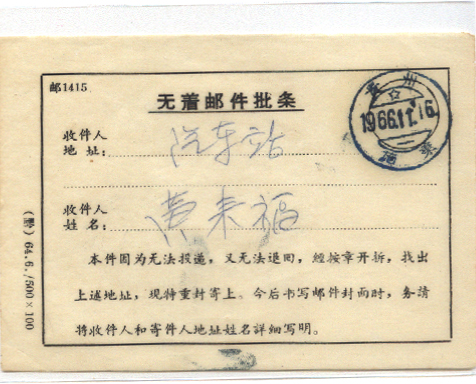 邮1415
无着邮件批条
收件人
地址： 汽车站
收件人
姓名： 黄来福
本件因为无法投递，又无法退回，经按章开拆，找出
上述地址，现特重封寄上。今后书写邮件封面时，务请
将收件人和寄件人地址姓名詳細写明。
州
1966.11.16
64.6./500×100